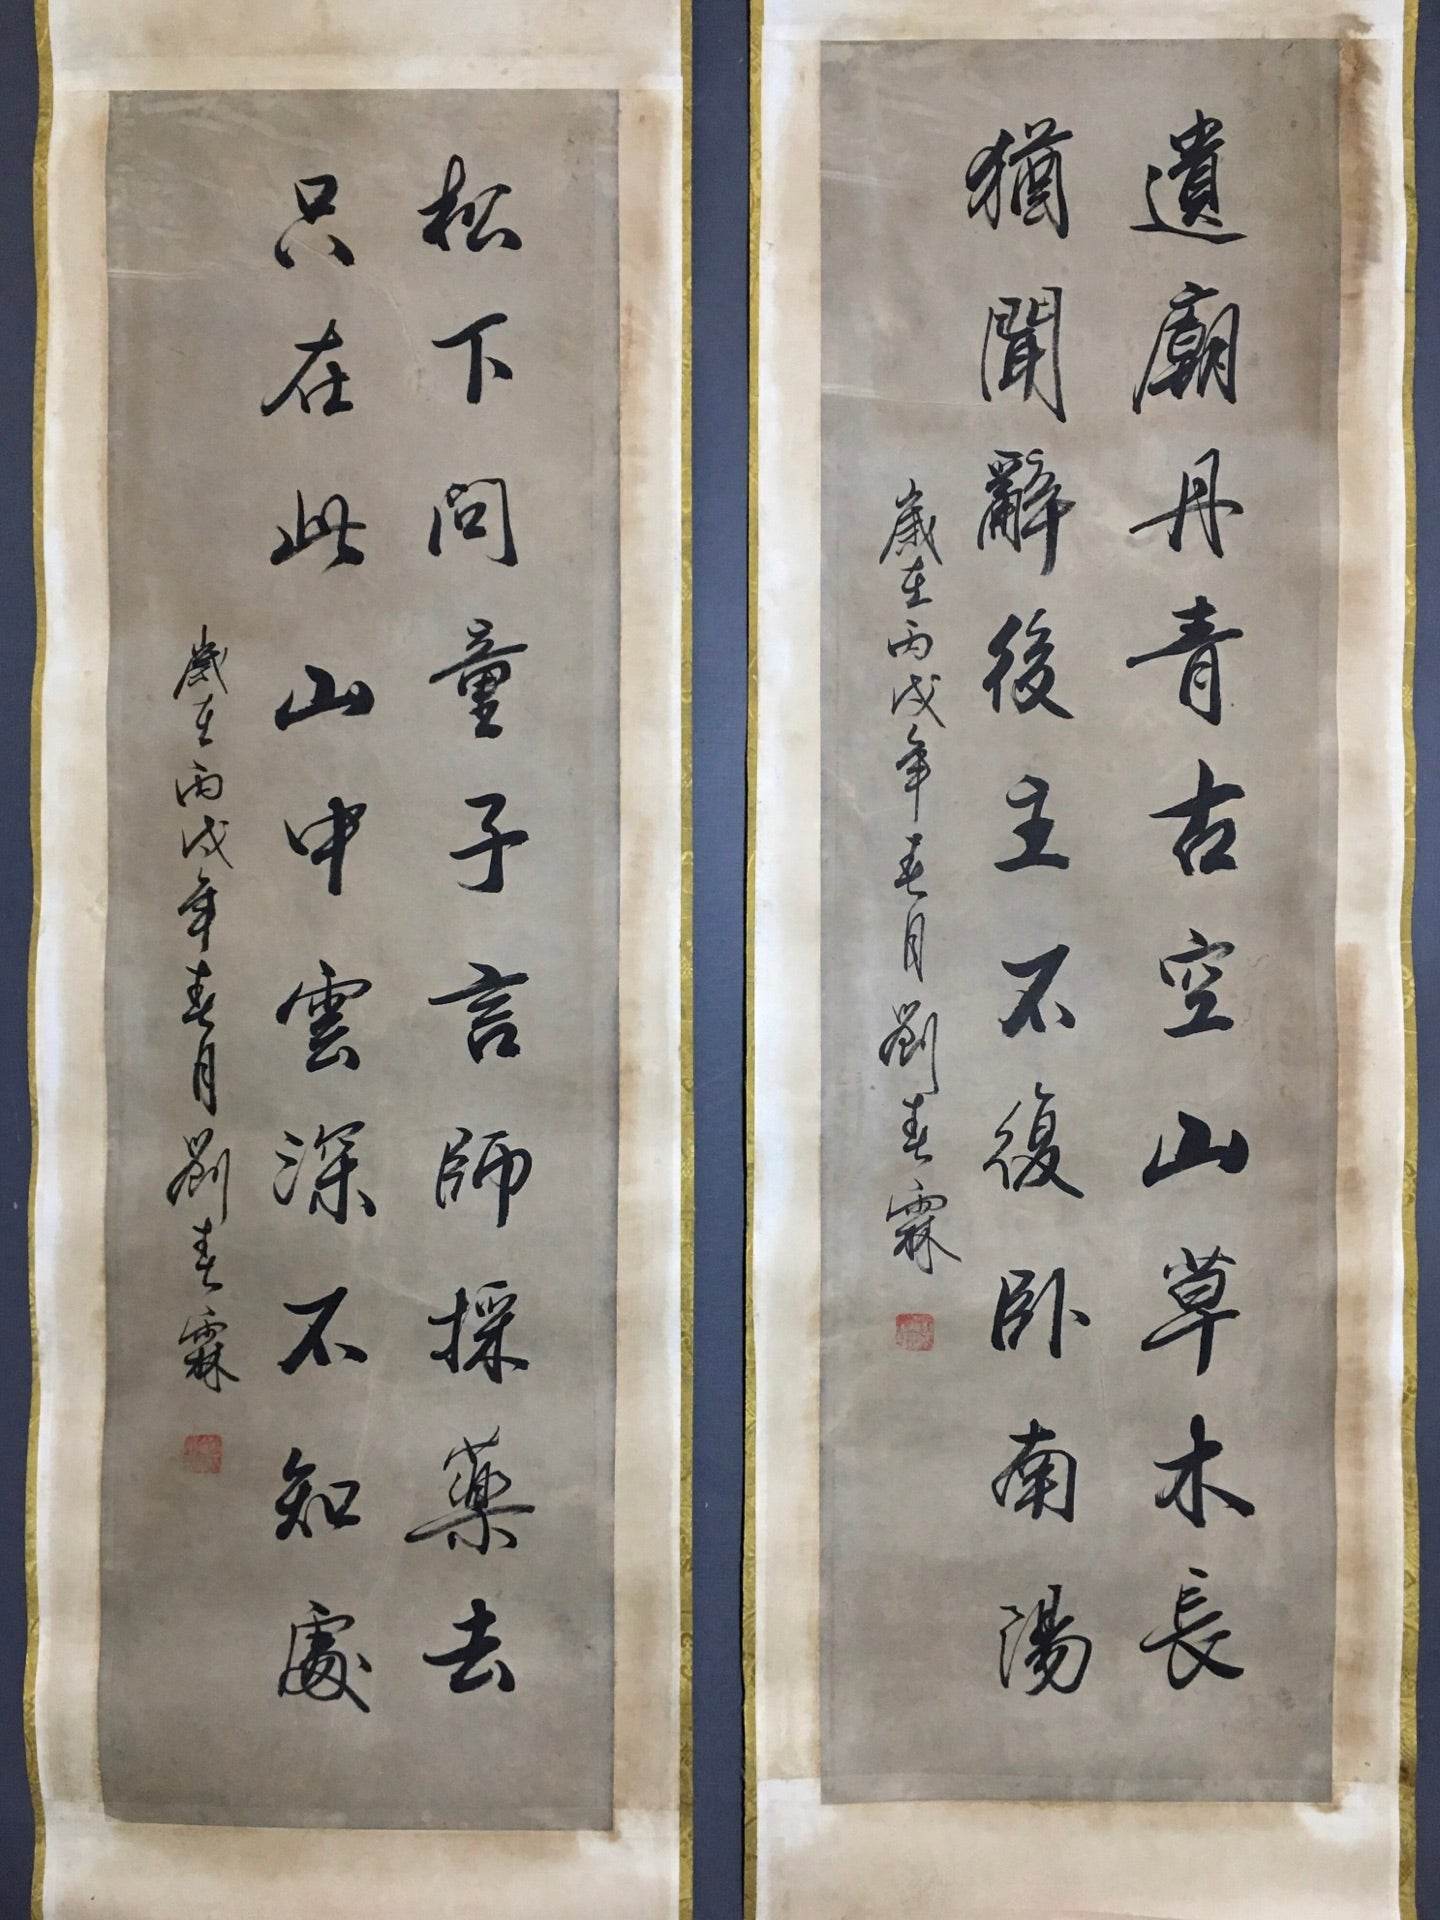 遺廟丹青古空山草木長
猶聞辭後主不復卧南陽
歲在丙戌年春月劉春霖
松下問童子言師採藥去
只在此山中雲深不知處
歲在丙戌年春月劉春霖